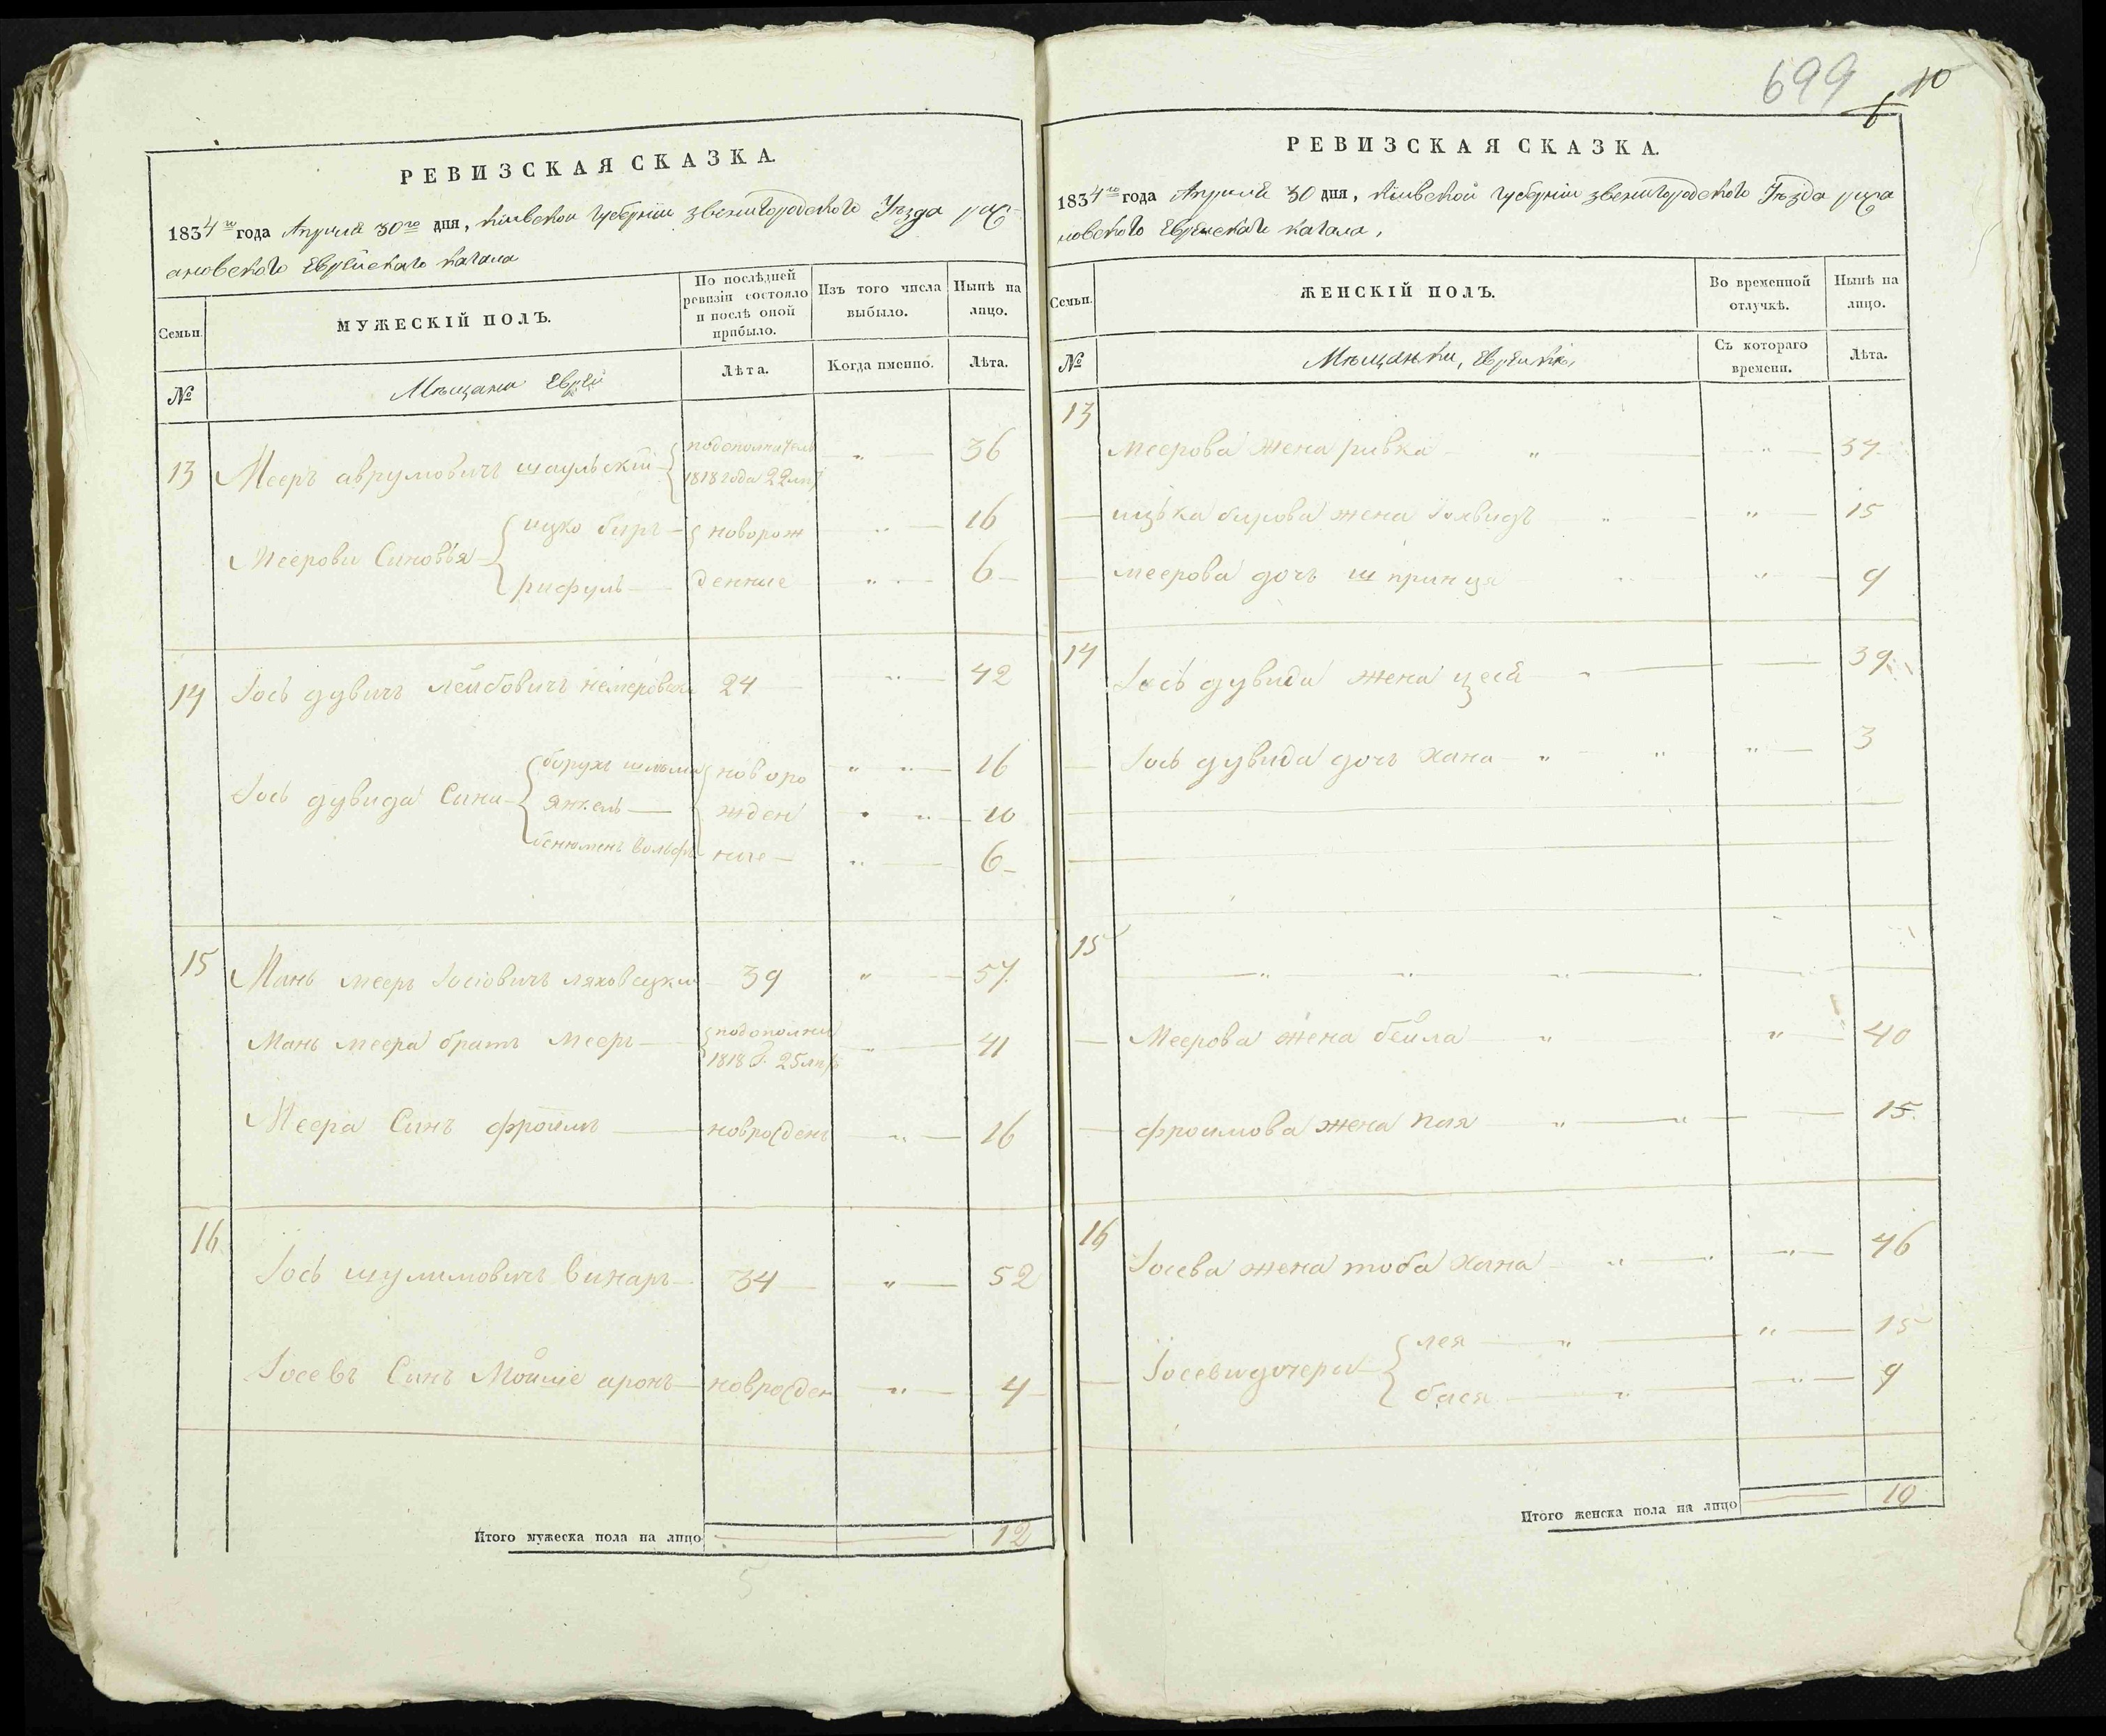 699
6 10
РЕВИЗСКАЯ СКАЗКА.
1834го года Апреля 30го дня, Кіевской губерніи Звенигородского Уезда рыж
ановского Еврейскаго кагала
Семьи.
МУЖЕСКІЙ ПОЛЪ.
По послѣдней ревизіи состояло и послѣ оной прибыло.
Изъ того числа выбыло.
Нынѣ на лицо.
№
Мещане Евреи
Лѣта.
Когда именно.
Лѣта.
13 Мееръ аврумовичъ шаульскій подополнитель 1818 года 22 лѣт „ 36
Меерови Синовъя ицко биръ новорож „ 16
рифуль денние „ 6
14 Іось дувидъ лейбовичъ немеровски 24 „ 42
Іось дувида Сини борухъ шлиома новоро „ 16
янкель жден „ 10
бенюменъ вольфъ ние „ 6
15 Мань мееръ Іосіовичъ ляховецки 39 „ 57
Мань меера братъ мееръ подополни 1818 г. 25 лѣт „ 41
Меера Синъ фроимъ новрожденъ „ 16
16 Іось шулимовичъ винаръ 34 „ 52
Іосевъ Синъ Мойше аронъ новрожден „ 4
Итого мужеска пола на лицо 12
5
РЕВИЗСКАЯ СКАЗКА.
1834го года Апреля 30 дня, Кіевской губерніи звенигородского Уезда рыжа
новского Еврейскаго кагала,
Семьи.
ЖЕНСКІЙ ПОЛЪ.
Во временной отлучкѣ.
Нынѣ на лицо.
№
Мещанки, Еврейки,
Съ котораго времени.
Лѣта.
13 Меерова жена ривка „ „ 37
ицъка бирова жена „ „ 15
меерова дочъ шпринця „ „ 9
14 Іось дувида жена цеся „ 39
Іось дувида дочъ хана „ „ „ 3
15 „ „ „
Меерова жена бейла „ „ 40
фроимова жена пая „ „ 15
16 Іосева жена тоба хана „ „ 46
Іосеви дочери лея „ „ 15
бася „ „ 9
Итого женска пола на лицо 10